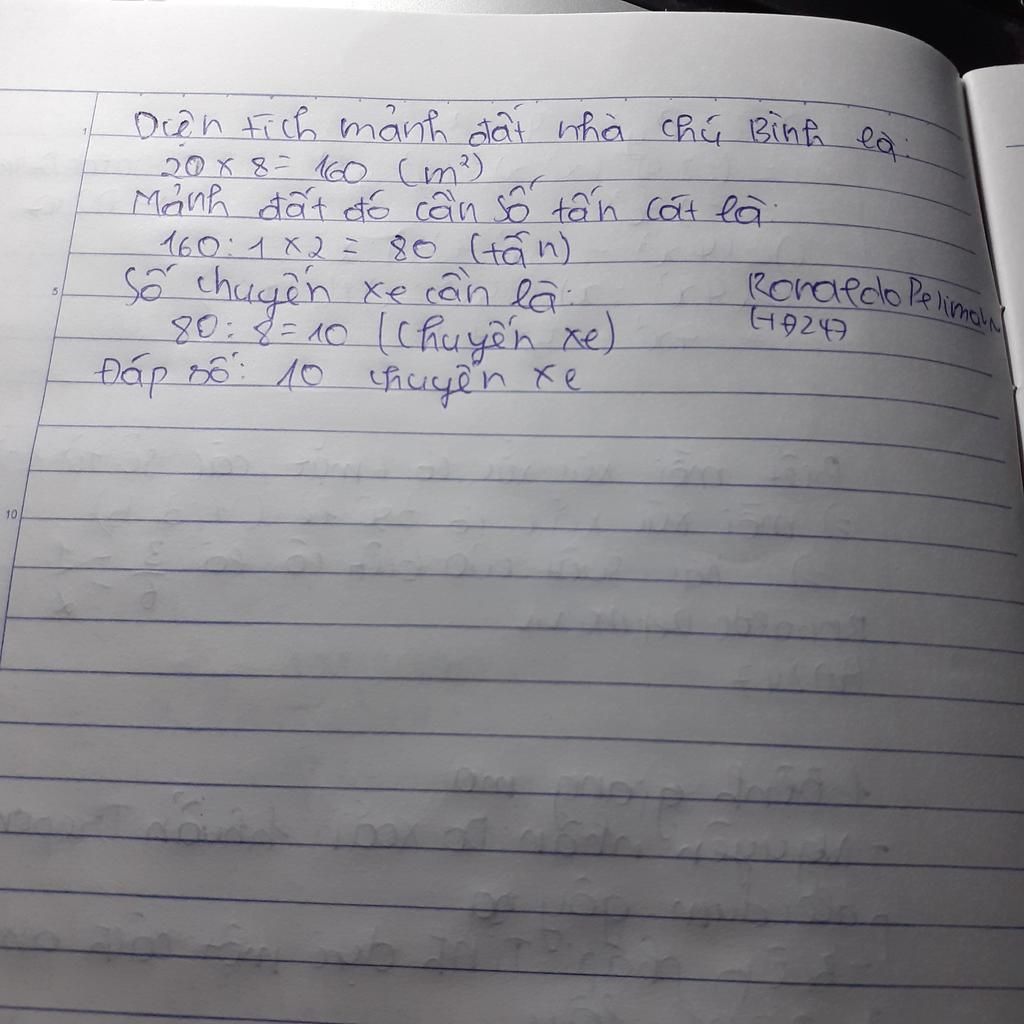 Diện tích mảnh đất nhà chú Bình là:
20 x 8 = 160 (m²)
Mảnh đất đó cần số tấn cát là:
160 : 1 x 2 = 80 (tấn)
Số chuyến xe cần là:
80 : 8 = 10 (chuyến xe)
Đáp số: 10 chuyến xe